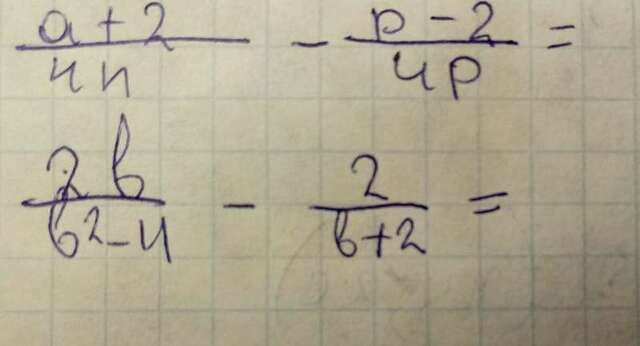 a + 2 / 4n - p - 2 / 4p =
2b / b² - 4 - 2 / b + 2 =